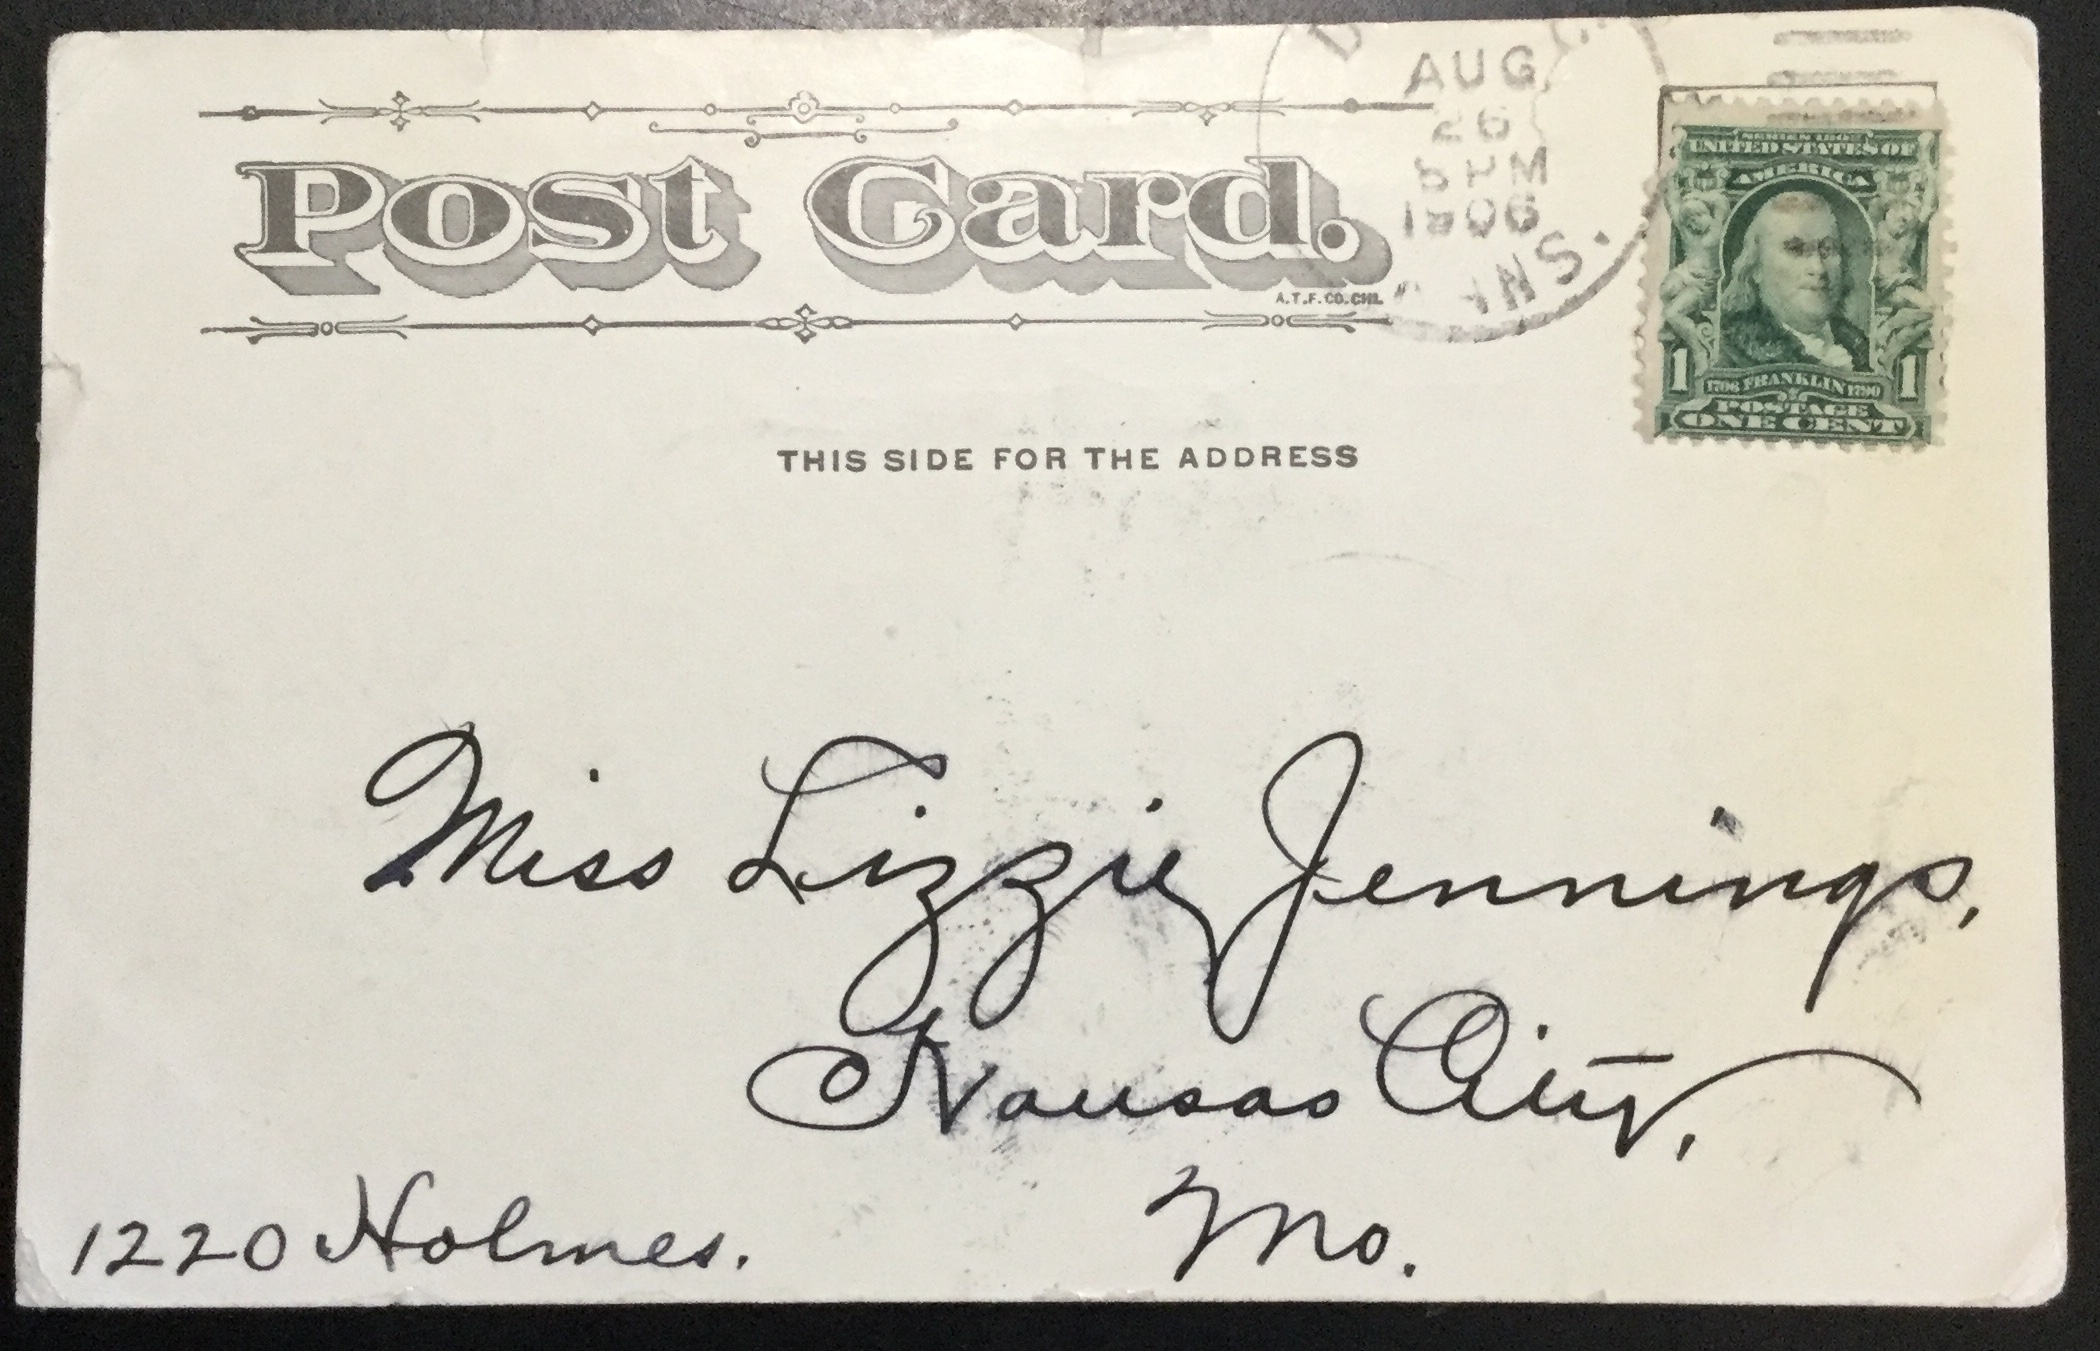 AUG
26
5 PM
1906
ANS.
Post Card.
A.T.F.CO.CHI.
SERIES 1902
UNITED STATES OF
AMERICA
1 1706 FRANKLIN 1790 1
POSTAGE
ONE CENT
THIS SIDE FOR THE ADDRESS
Miss Lizzie Jennings,
Kansas City,
Mo.
1220 Holmes.